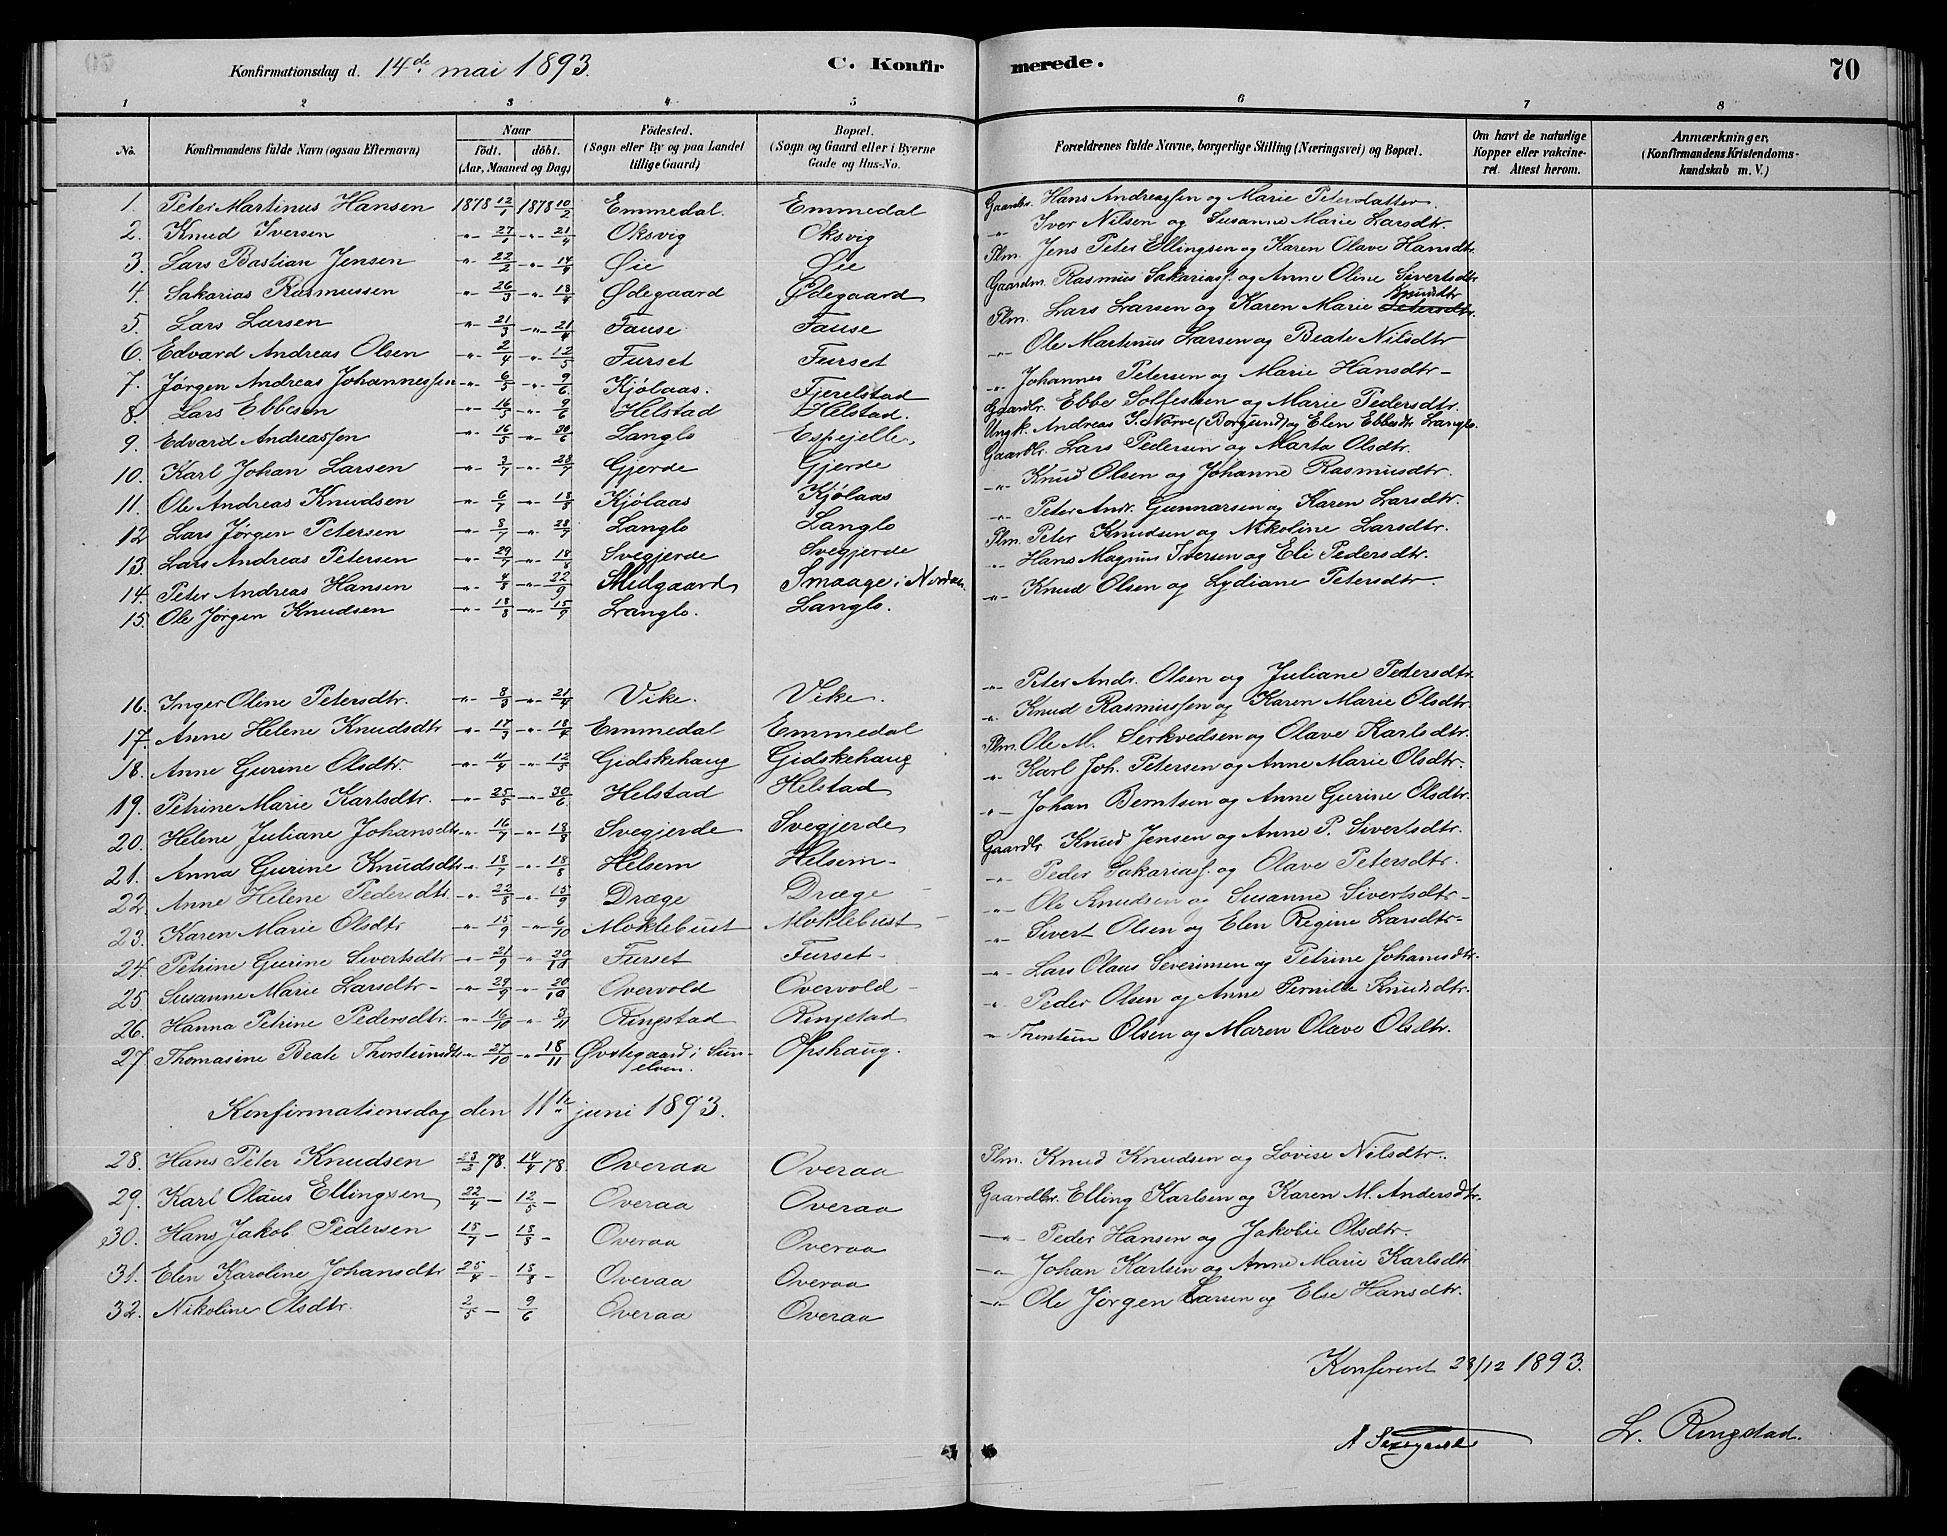 Konfirmationsdag d. 14de mai 1893. C. Konfirmerede. 70
1 2 3 4 5 6 7 8
No. Konfirmandens fulde Navn (ogsaa Efternavn) Naar födt. döbt. (Aar, Maaned og Dag) Födested. (Sogn eller By og paa Landet tillige Gaard) Bopæl. (Sogn og Gaard eller i Byerne Gade og Hus-No. Forældrenes fulde Navne, borgerlige Stilling (Næringsvei) og Bopæl. Om havt de naturlige Kopper eller vakcineret. Attest herom. Anmærkninger, (Konfirmandens Kristendomskundskab m. V.)
1. Peter Martinus Hansen 1878 12/1 1878 10/2 Emmedal. Emmedal Gaardbr. Hans Andreassen og Marie Petersdatter.
2. Knud Iversen -"- 27/1 -"- 21/4 Oksvig Oksvig -"- Iver Nilsen og Susanne Marie Larsdtr.
3. Lars Bastian Jensen -"- 22/2 -"- 14/4 Øie Øie Plm. Jens Peter Ellingsen og Karen Olave Hansdtr.
4. Sakarias Rasmussen -"- 26/3 -"- 18/4 Ødegaard Ødegaard Gaardm. Rasmus Sakarias. og Anne Oline Sivertsdtr
5. Lars Larsen -"- 21/3 -"- 21/4 Fause Fause Plm. Lars Larsen og Karen Marie Petersdtr. Knudsdtr
6. Edvard Andreas Olsen -"- 2/4 -"- 12/5 Furset Furset -"- Ole Martinus Larsen og Beate Nilsdtr
7. Jørgen Andreas Johannessen -"- 6/5 -"- 9/6 Kjölaas. Fjerelstad -"- Johannes Petersen og Marie Hansdtr-
8. Lars Ebbesen -"- 16/5 -"- 9/6 Helstad Helstad. Gaardbr. Ebbe Solfessen og Marie Pedersdtr.
9. Edvard Andreassen -"- 16/5 -"- 30/6 Langlo Espejelle, Ungk. Andreas S. Nørve (Borgund) og Elen Ebbesdtr Langlo.
10. Karl Johan Larsen -"- 3/7 -"- 28/7 Gjerde Gjerde Gaardbr. Lars Pedersen og Marta Olsdtr.
11. Ole Andreas Knudsen -"- 6/7 -"- 18/8 Kjölaas Kjölaas -"- Knud Olsen og Johanne Rasmusdtr.
12 Lars Jørgen Petersen -"- 8/7 -"- 28/7 Langlo Langlo -"- Peter Andr. Gunnarsen og Karen Larsdtr.
13. Lars Andreas Petersen -"- 29/7 -"- 18/8 Svegjerde Svegjerde Plm. Peter Knudsen og Nikoline Larsdtr.
14. Peter Andreas Hansen -"- 4/8 -"- 22/9 Midgaard Smaage i Norddalen -"- Hans Magnus Iversen og Eli Pedersdtr.
15. Ole Jørgen Knudsen -"- 18/8 -"- 15/9 Langlo. Langlo. -"- Knud Olsen og Lydiane Petersdtr.
16. Inger Oline Petersdtr. -"- 8/3 -"- 21/4 Vike. Vike. -"- Peter Andr. Olsen og Juliane Petersdtr.
17. Anne Helene Knudsdtr -"- 17/3 -"- 18/4 Emmedal Emmedal -"- Knud Rasmussen og Karen Marie Olsdtr.
18. Anne Gurine Olsdtr. -"- 11/4 -"- 12/5 Gidskehaug Gidskehaug Plm. Ole M. Serkvedsen og Olave Karlsdtr.
19. Petrine Marie Karlsdtr. -"- 25/5 -"- 30/6 Helstad Helstad -"- Karl Joh. Petersen og Anne Marie Olsdtr.
20. Helene Juliane Johansdtr -"- 16/7 -"- 18/8 Svegjerde Svegjerde -"- Johan Berntsen og Anne Gurine Olsdtr.
21. Anna Gurine Knudsdtr -"- 18/7 -"- 18/8 Helsem Helsem- Gaardbr Knud Jensen og Anne P. Sivertsdtr.
22. Anne Helene Pedersdtr -"- 22/8 -"- 15/9 Dræge Dræge - -"- Peder Sakarias. og Olave Petersdtr.
23. Karen Marie Olsdtr -"- 15/9 -"- 6/10 Moklebust Moklebust -"- Ole Knudsen og Susanne Sivertsdtr-
24. Petrine Gurine Sivertsdtr -"- 21/9 -"- 20/10 Furset Furset- -"- Sivert Olsen og Elen Regine Larsdtr-
25 Susanne Marie Larsdtr- -"- 29/9 -"- 20/10 Overvold Overvold- -"- Lars Olaus Severinsen og Petrine Johansdtr.
26. Hanna Petrine Pedersdtr. -"- 16/10 -"- 3/11 Ringstad Ringstad -"- Peder Olsen og Anne Pernille Knudsdtr.
27. Thomasine Beate Thorsteinsdtr -"- 27/10 -"- 18/11 Øvstegaard i Sunelven. Opshaug. -"- Thorstein Olsen og Maren Olave Olsdtr.
Konfirmationsdag den 11te juni 1893.
28. Hans Peter Knudsen 23/3 78. 14/4 78. Overaa Overaa Plm. Knud Knudsen og Lovise Nilsdtr.
29. Karl Olaus Ellingsen 22/4 - 12/5 - Overaa Overaa Gaardbr. Elling Karlsen og Karen M. Andersdtr.
30. Hans Jakob Pedersen 15/7 - 18/8 - Overaa Overaa -"- Peder Hansen og Jakobie Olsdtr.
31. Elen Karoline Johansdtr 25/4 - 18/8 - Overaa Overaa -"- Johan Karlsen og Anne Marie Karlsdtr
32. Nikoline Olsdtr. 2/5 - 9/6 Overaa Overaa -"- Ole Jørgen Larsen og Else Hansdtr.
Konfereret 23/12 1893.
L. Ringstad.